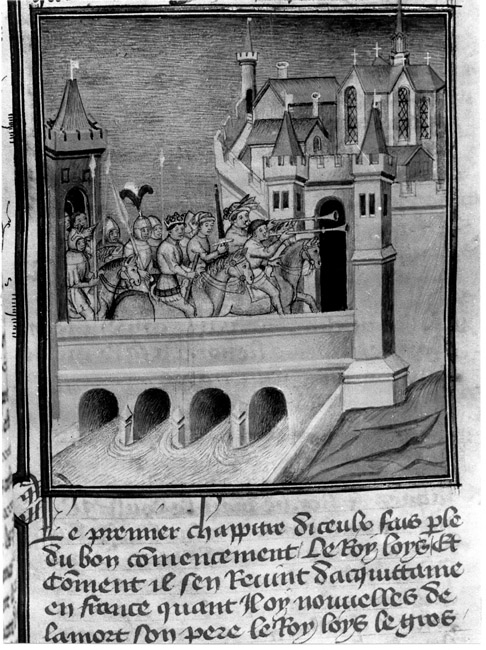 Le premier chappitre diceulx fais ple
du bon cõmencement Le Roy loys Et
Cõment il sen Revint dacquittaine
en france quant Il oy nouvelles de
lamort son pere le Roy loys le gros